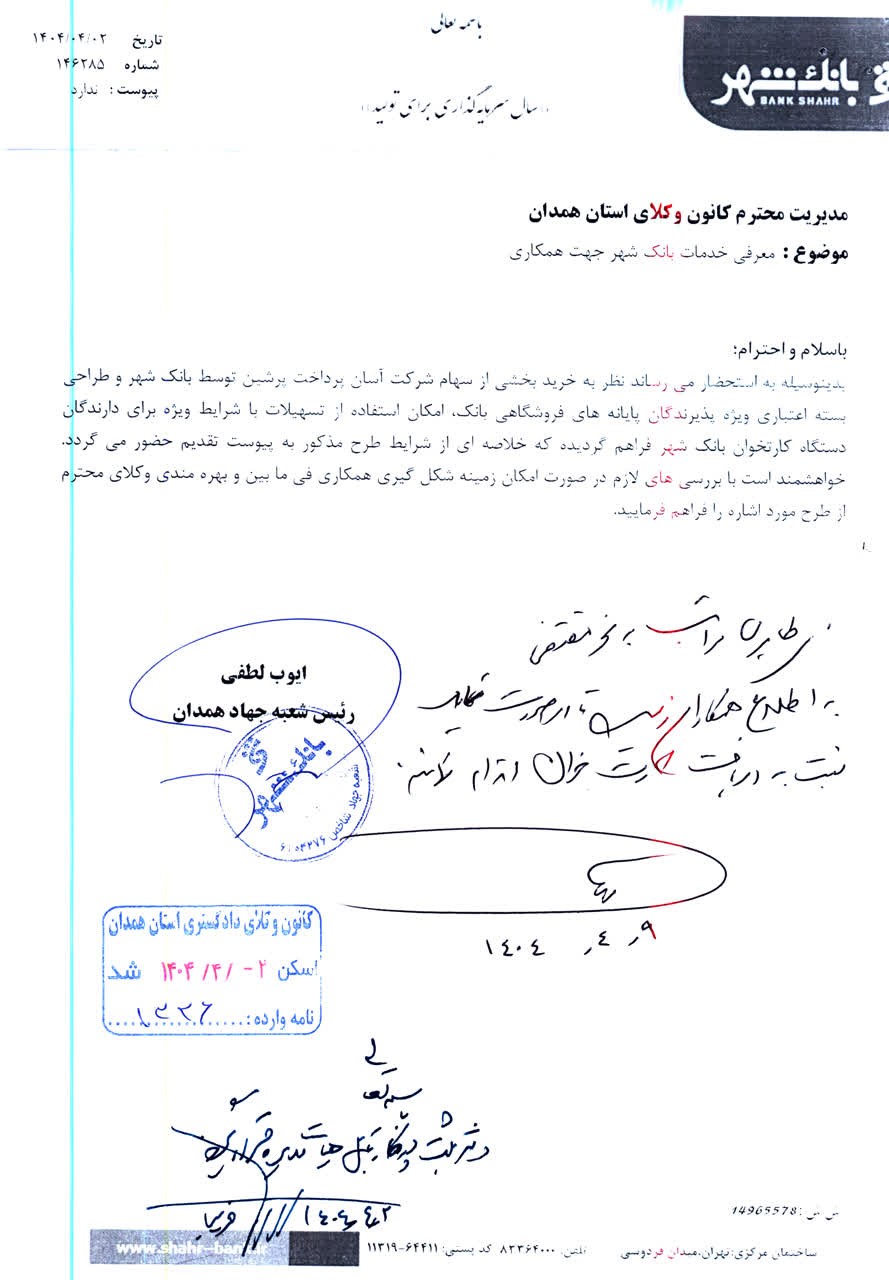 باسمه تعالی
بانک شهر
BANK SHAHR
تاریخ ۱۴۰۴/۰۴/۰۲
شماره ۱۴۶۲۸۵
پیوست : ندارد
((سال سرمایه گذاری برای تولید))
مدیریت محترم کانون وکلای استان همدان
موضوع : معرفی خدمات بانک شهر جهت همکاری
باسلام و احترام؛
بدینوسیله به استحضار می رساند نظر به خرید بخشی از سهام شرکت آسان پرداخت پرشین توسط بانک شهر و طراحی
بسته اعتباری ویژه پذیرندگان پایانه های فروشگاهی بانک، امکان استفاده از تسهیلات با شرایط ویژه برای دارندگان
دستگاه کارتخوان بانک شهر فراهم گردیده که خلاصه ای از شرایط طرح مذکور به پیوست تقدیم حضور می گردد.
خواهشمند است با بررسی های لازم در صورت امکان زمینه شکل گیری همکاری فی ما بین و بهره مندی وکلای محترم
از طرح مورد اشاره را فراهم فرمایید.
مراتب به نحو مقتضی
به اطلاع همکاران
نسبت به دریافت کارت خوان اقدام
ایوب لطفی
رئیس شعبه جهاد همدان
بانک شهر
شعبه جهاد شاخص
۹ ,۴ ,۱۴۰۴
کانون وکلای دادگستری استان همدان
اسکن ۲ - /۴/ ۱۴۰۴ شد
نامه وارده :.......۱۳۲۶
دفتر ثبت
س ش : 14965578
ساختمان مرکزی:تهران،میدان فردوسی تلفن: ۸۳۳۶۴۰۰۰ کد پستی: ۶۴۴۱۱-۱۱۳۱۹
www.shahr-bank.ir